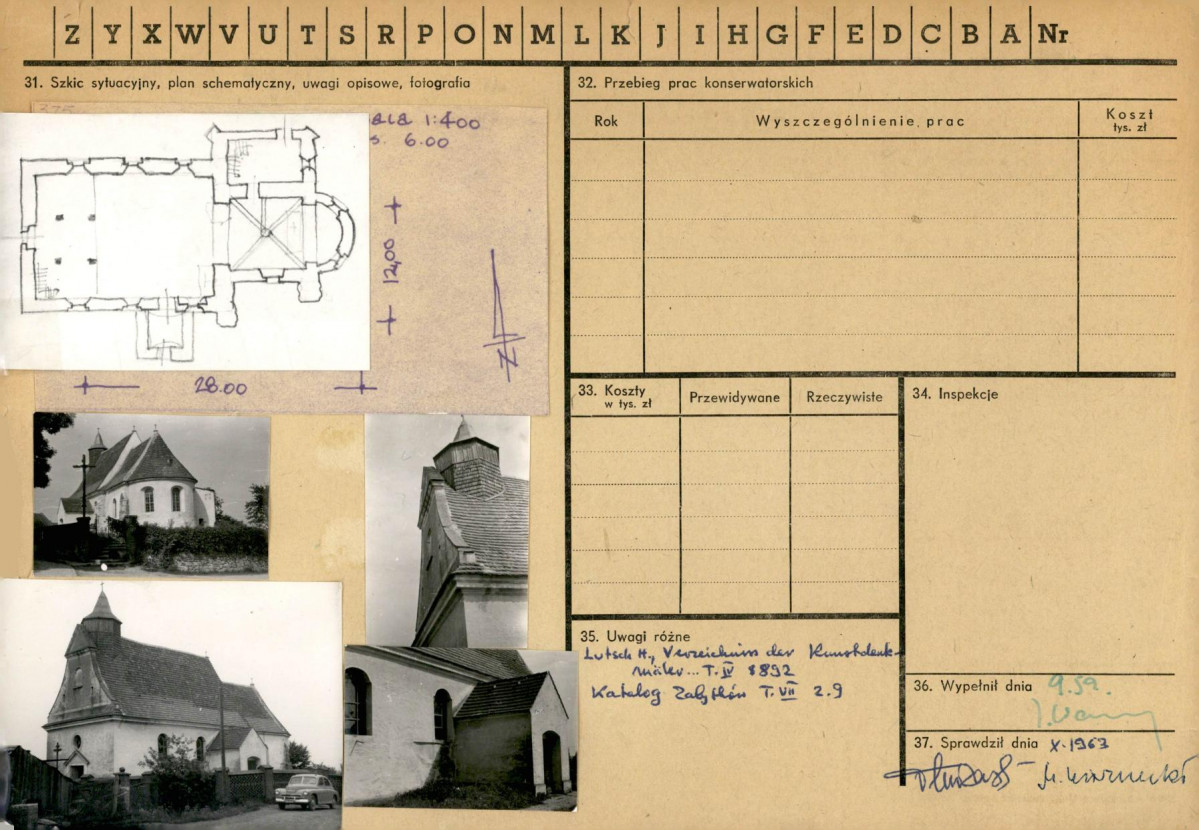 Z Y X W V U T S R P O N M L K J I H G F E D C B A Nr
31. Szkic sytuacyjny, plan schematyczny, uwagi opisowe, fotografia
375
ala 1:400
s. 6.00
12,00
N
28.00
32. Przebieg prac konserwatorskich
Rok
Wyszczególnienie prac
Koszt
tys. zł
33. Koszty
w tys. zł
Przewidywane
Rzeczywiste
34. Inspekcje
35. Uwagi różne
Lutsch H., Verzeichniss der Kunstdenk-
mäler... T. IV 1892
Katalog Zabytków T. VII z. 9
36. Wypełnił dnia 9.59.
37. Sprawdził dnia X.1963